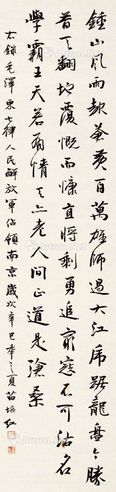 鍾山風雨起蒼黃百萬雄師過大江虎踞龍盤今勝
昔天翻地覆慨而慷宜將剩勇追窮寇不可沽名
學霸王天若有情天亦老人間正道是滄桑
右錄毛澤東七律人民解放軍佔領南京歲次辛巳年之夏